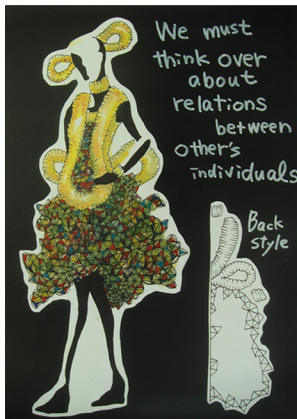 We must
think over
about
relations
between
other's
individuals
Back
style